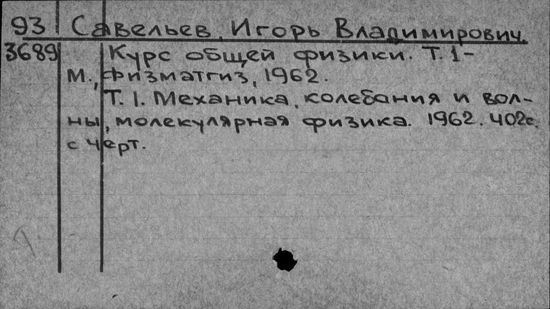 93 Савельев, Игорь Владимирович
3689 Курс общей физики. Т. 1-
М., Физматгиз, 1962.
Т. 1. Механика, колебания и вол-
ны, молекулярная физика. 1962. 402с.
с черт.